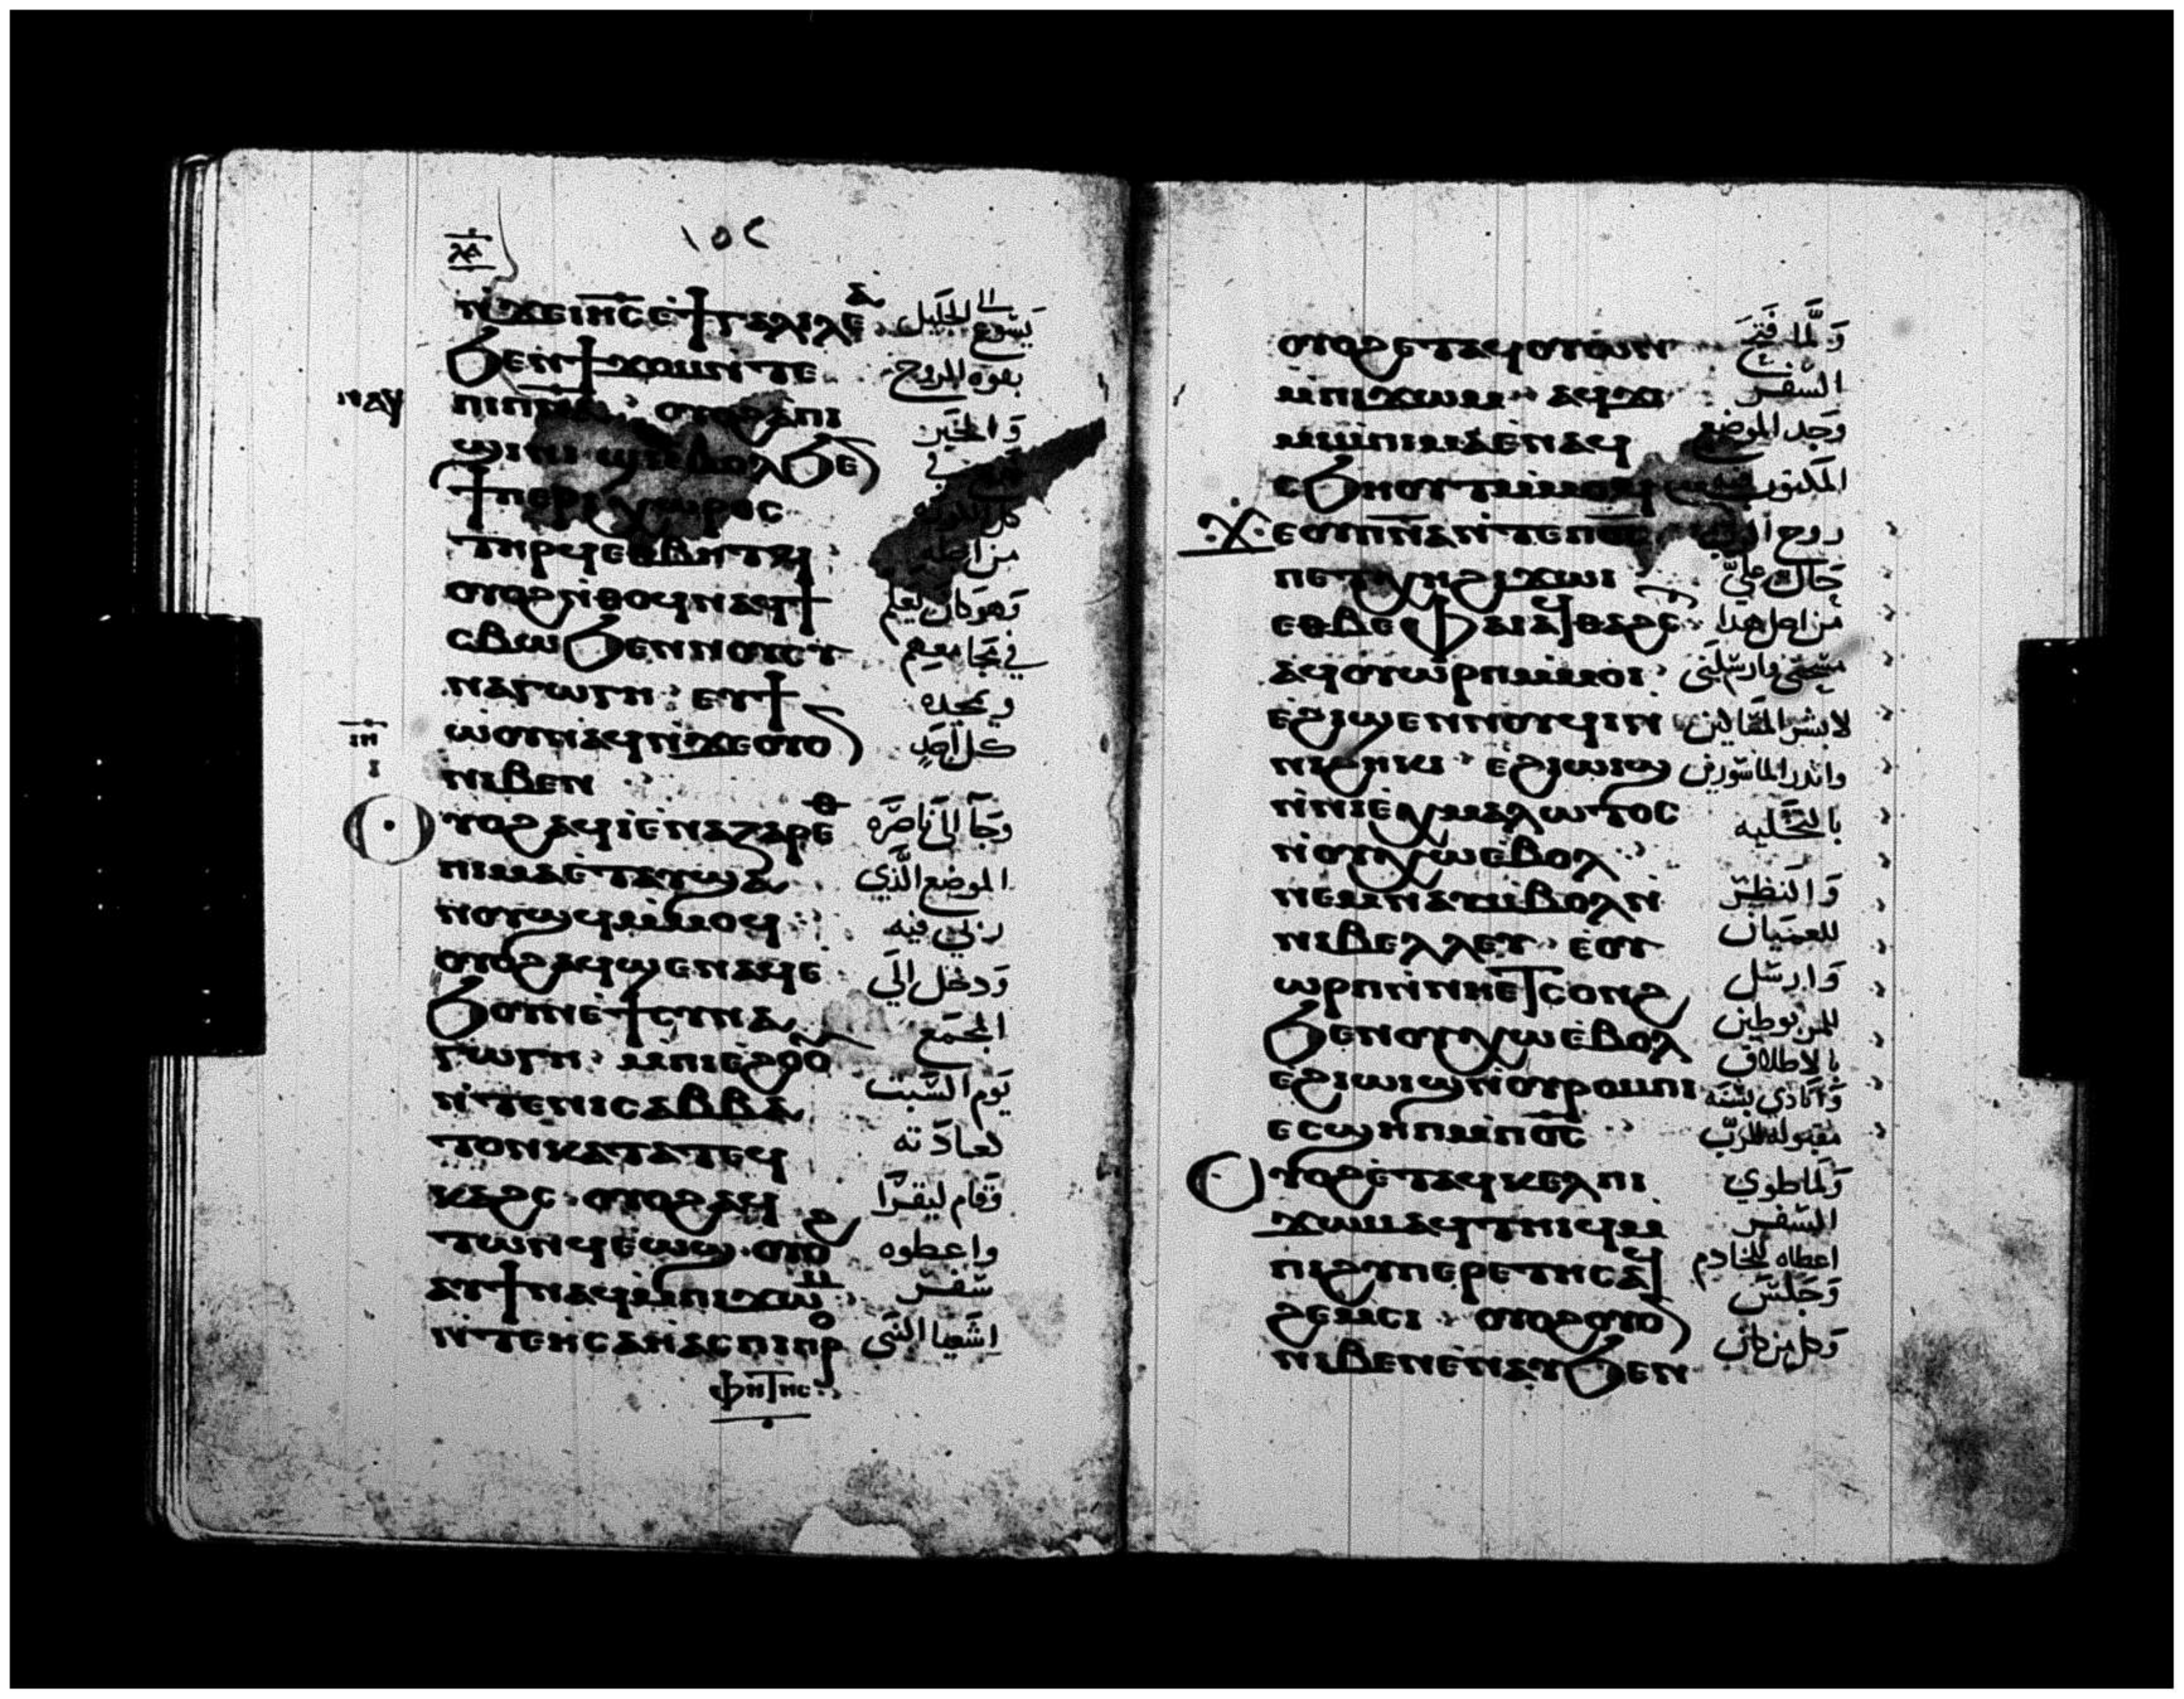 ١٥٢
ⲛ̀ϫⲉⲓⲏ̅ⲥ̅ⲉ̀ϯⲅⲁⲗⲓⲗⲉⲁ̀ يسوع الى الجليل
ϧⲉⲛϯϫⲟⲙⲛ̀ⲧⲉ بقوة الروح
ⲡⲓⲡⲛ̅ⲁ̅ ⲟⲩⲟϩⲁ̀ⲡⲓ وَالخبر
ⲥⲙⲏ ⲉⲃⲟⲗϧⲉ في
ϯⲡⲉⲣⲓⲭⲱⲣⲟⲥ
ⲧⲏⲣϥⲉⲑⲃⲏⲧϥ من اجله
ⲟⲩⲟϩⲛ̀ⲑⲟϥⲛⲁϥϯ وَهو كان يعلم
ⲥⲃⲱϧⲉⲛⲛⲟⲩⲥⲩ في مجامعهم
ⲛⲁⲅⲱⲅⲏ ⲉⲩϯ ويمجده
ⲱ̀ⲟⲩⲛⲁϥⲛ̀ϫⲉⲟⲩⲟ كل احد
ⲛⲓⲃⲉⲛ
ⲟⲩⲟϩⲁϥⲓ̀ⲉ̀ⲛⲁⲍⲁⲣⲉⲑ وَجآ الى ناصرة
ⲡⲓⲙⲁⲉ̀ⲧⲁⲩϣⲁ الموضع الذي
ⲛⲟⲩϣϥⲙ̀ⲙⲟϥ ربي فيه
ⲟⲩⲟϩⲁϥϣⲉⲛⲁϥⲉ̀ وَدخل الي
ϧⲟⲩⲛⲉ̀ϯⲥⲩⲛⲁ المجمع
ⲅⲱⲅⲏ ⲙ̀ⲡⲓⲉ̀ϩⲟⲟ يَوم السَّبت
ⲛ̀ⲧⲉⲛⲓⲥⲁⲃⲃⲁ
ⲧⲟⲛⲕⲁⲧⲁⲧⲉϥ لعادَته
ⲕⲁϩⲥ ⲟⲩⲟϩⲁϥ وَقام ليقرا
ⲧⲱⲛϥⲉ̀ⲱϣ ⲟⲩⲟϩ واعطوه
ⲁⲩϯⲛⲁϥⲙ̀ⲡⲓϫⲱⲙ سفر
ⲛ̀ⲧⲉⲏⲥⲁⲏ̀ⲁⲥⲡⲓⲡⲣⲟ اشعيا النبى
ⲫⲏⲧⲏⲥ
ⲟⲩⲟϩⲉⲧⲁϥⲟⲩⲱⲛ وَلَّما فتح
ⲙ̀ⲡⲓϫⲱⲙ ⲁϥϫⲓ السفر
ⲙⲙ̀ⲡⲓⲙⲁⲉ̀ⲛⲁϥ وَجد الموضع
ⲥϧⲏⲟⲩⲧⲙ̀ⲙⲟϥ المكتوب
ϫⲉⲟⲩⲡ̅ⲛ̅ⲁ̅ⲛ̀ⲧⲉⲡ̅ⲟ̅ⲥ̅ روح الرب
ⲡⲉⲧⲭⲏϩⲓϫⲱⲓ حَال عليَّ
ⲉⲑⲃⲉⲫⲁⲓⲁϥⲑⲁϩⲥⲧ من اجل هذا
ⲁϥⲟⲩⲱⲣⲡⲙ̀ⲙⲟⲓ مسحني وارسلنى
ⲉ̀ϩⲓϣⲉⲛⲛⲟⲩϥⲓⲛ لابشر المَساكين
ⲛⲓϩⲏⲕⲓ ⲉ̀ϩⲓⲱⲓϣ وانذر الماسورين
ⲛ̀ⲛⲓⲉⲭⲙⲁⲗⲱⲧⲟⲥ بالتخليه
ⲛ̀ⲟⲩⲭⲱⲉ̀ⲃⲟⲗ
ⲛⲉⲙⲛⲁⲩⲙ̀ⲃⲟⲗⲛ̀ وَالنظر
ⲛⲓⲃⲉⲗⲗⲉⲩ ⲉ̀ⲟⲩ للعميان
ⲱⲣⲡⲛ̀ⲛⲏⲉⲧⲥⲟⲛϩ وَارسل
ϧⲉⲛⲟⲩⲭⲱⲉⲃⲟⲗ للمربوطين بالاطلاق
ⲉ̀ϩⲓⲱⲓϣⲛ̀ⲟⲩⲣⲟⲙⲡⲓ وَانادي بسنة
ⲉⲥϣⲏⲡⲙ̀ⲡ̅ⲟ̅ⲥ̅ مقبوله للرَّب
ⲟⲩⲟϩⲉ̀ⲧⲁϥⲕⲉⲗⲡⲓ وَلما طوي
ϫⲱⲙⲁϥⲧⲏⲓϥⲙ السفر
ⲡⲓϩⲩⲡⲉⲣⲉⲧⲏⲥⲁϥ اعطاه للخادم
ϩⲉⲙⲥⲓ ⲟⲩⲟϩⲟⲩⲟ وَجَلسَ
ⲛⲓⲃⲉⲛⲉ̀ⲛⲁⲩϧⲉⲛ وَكل من كان